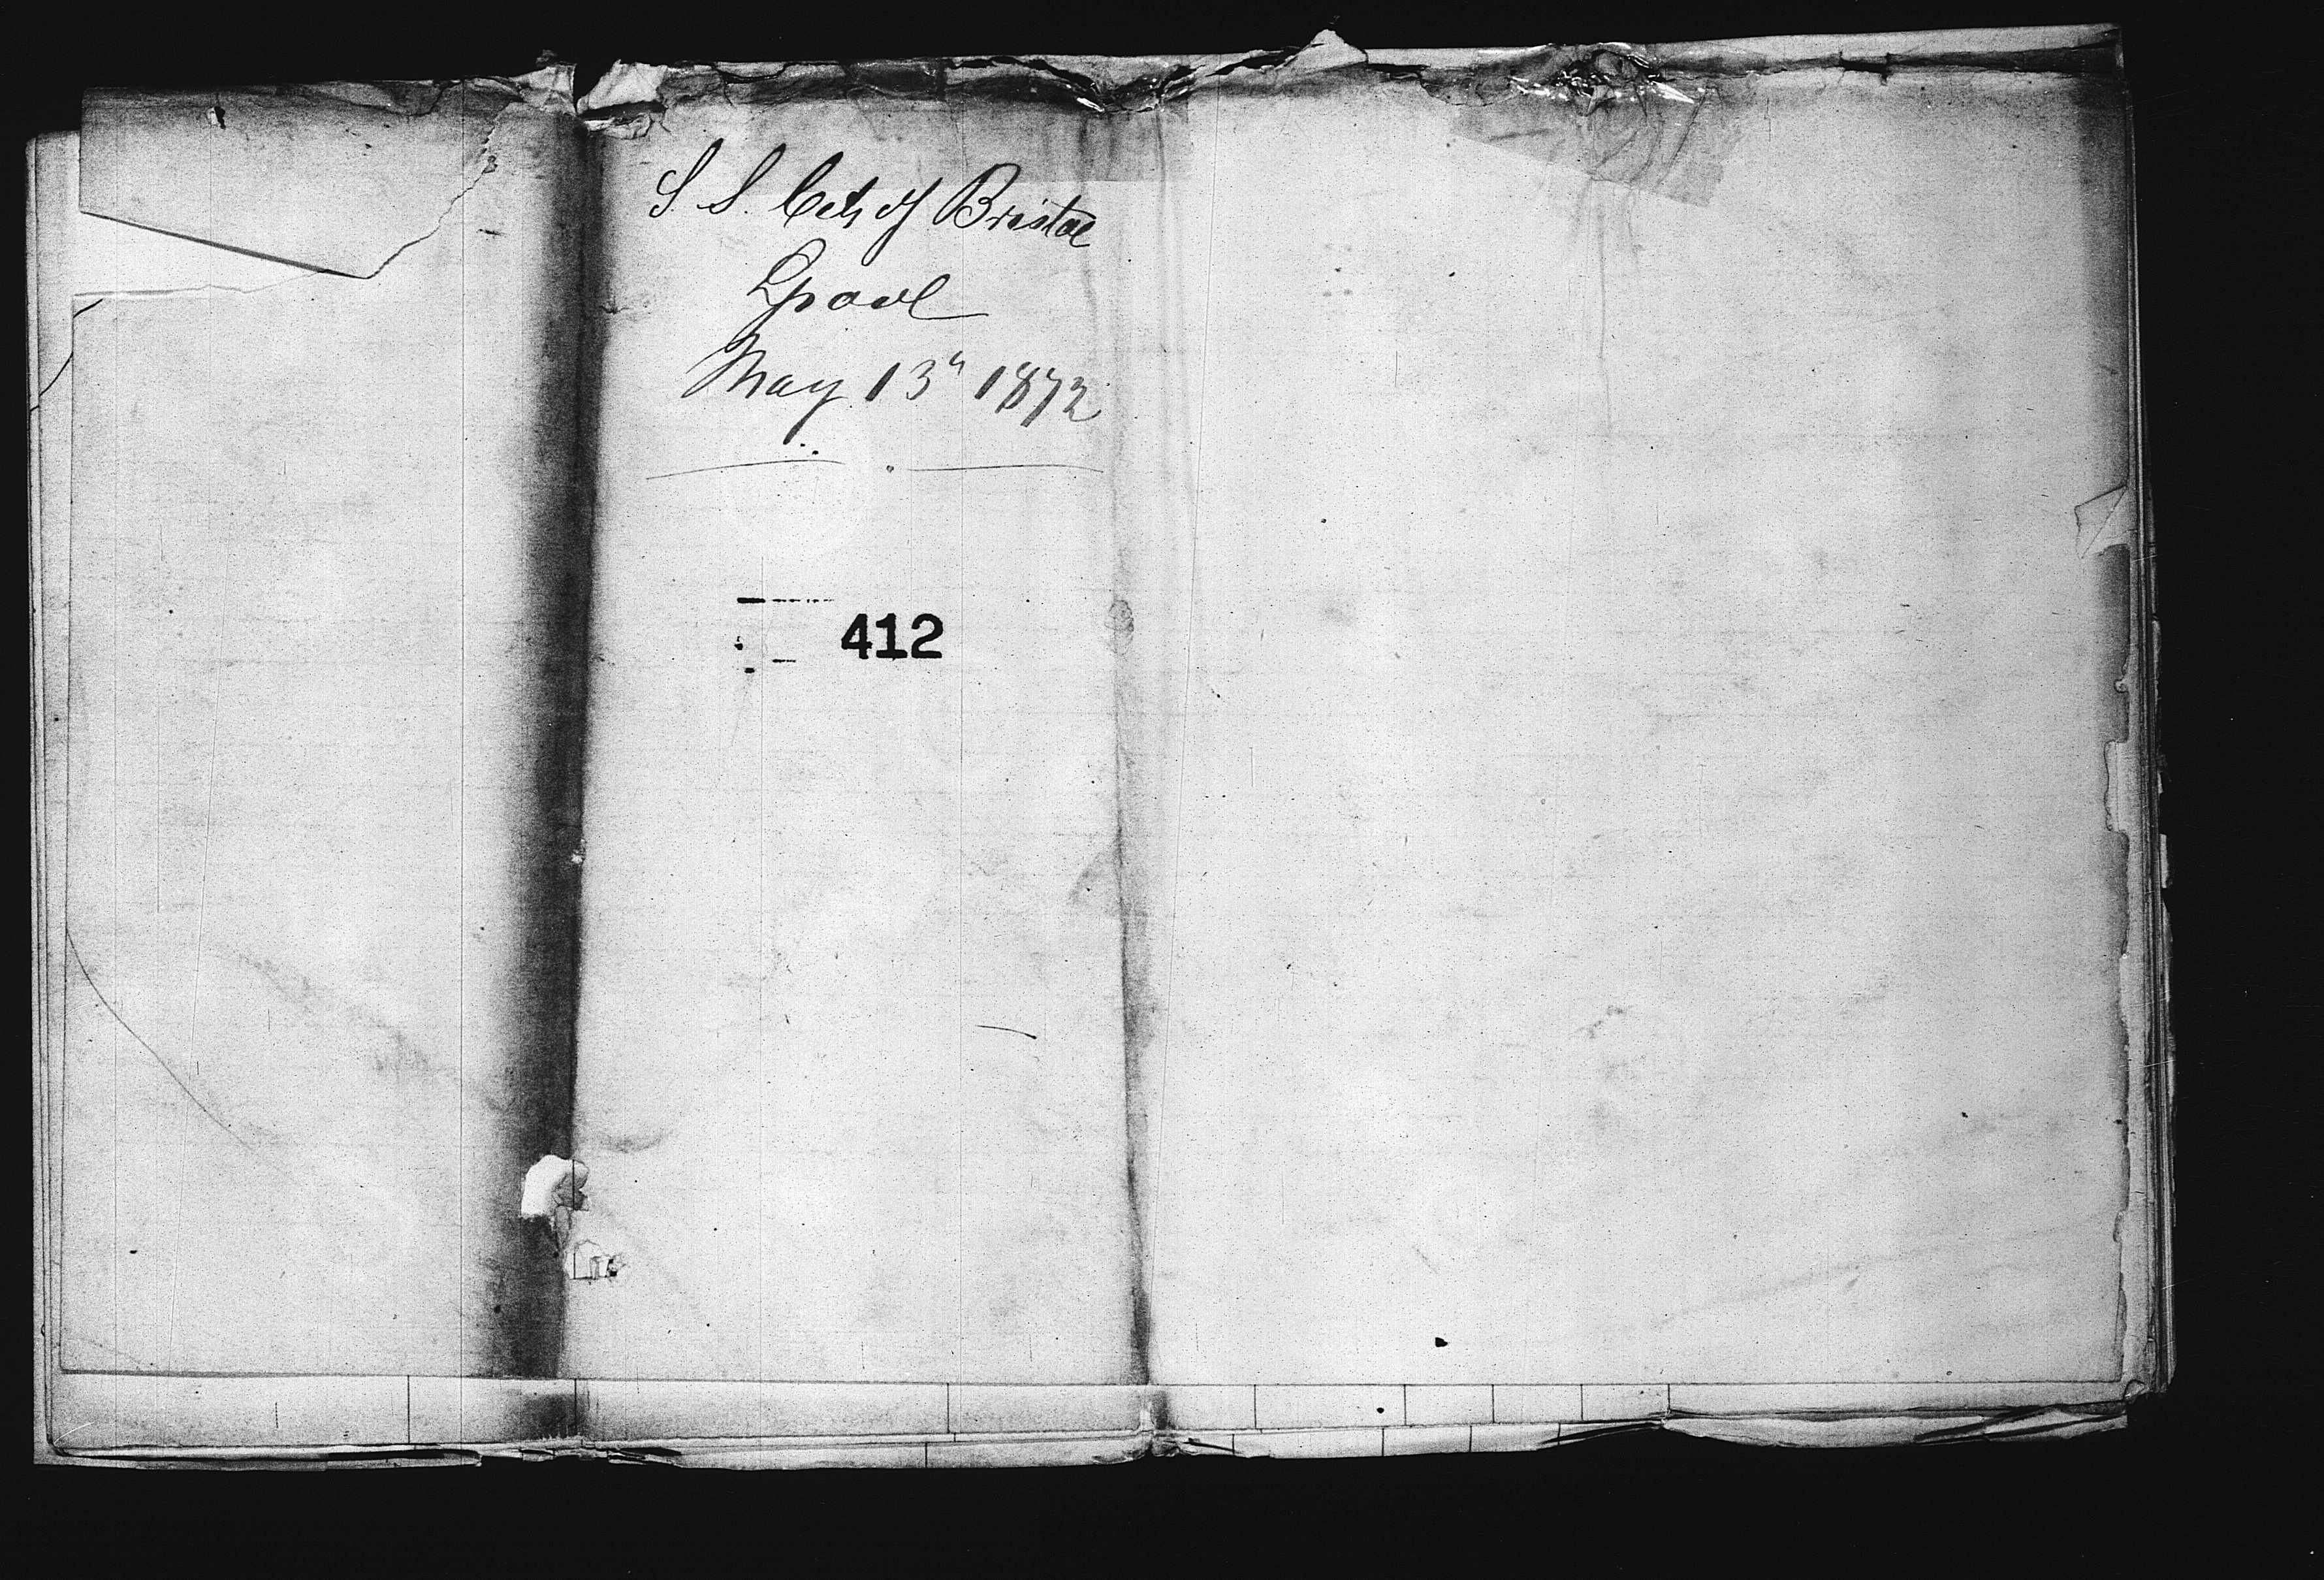 S. S. City of Bristol
Lpool
May 13th 1872
412